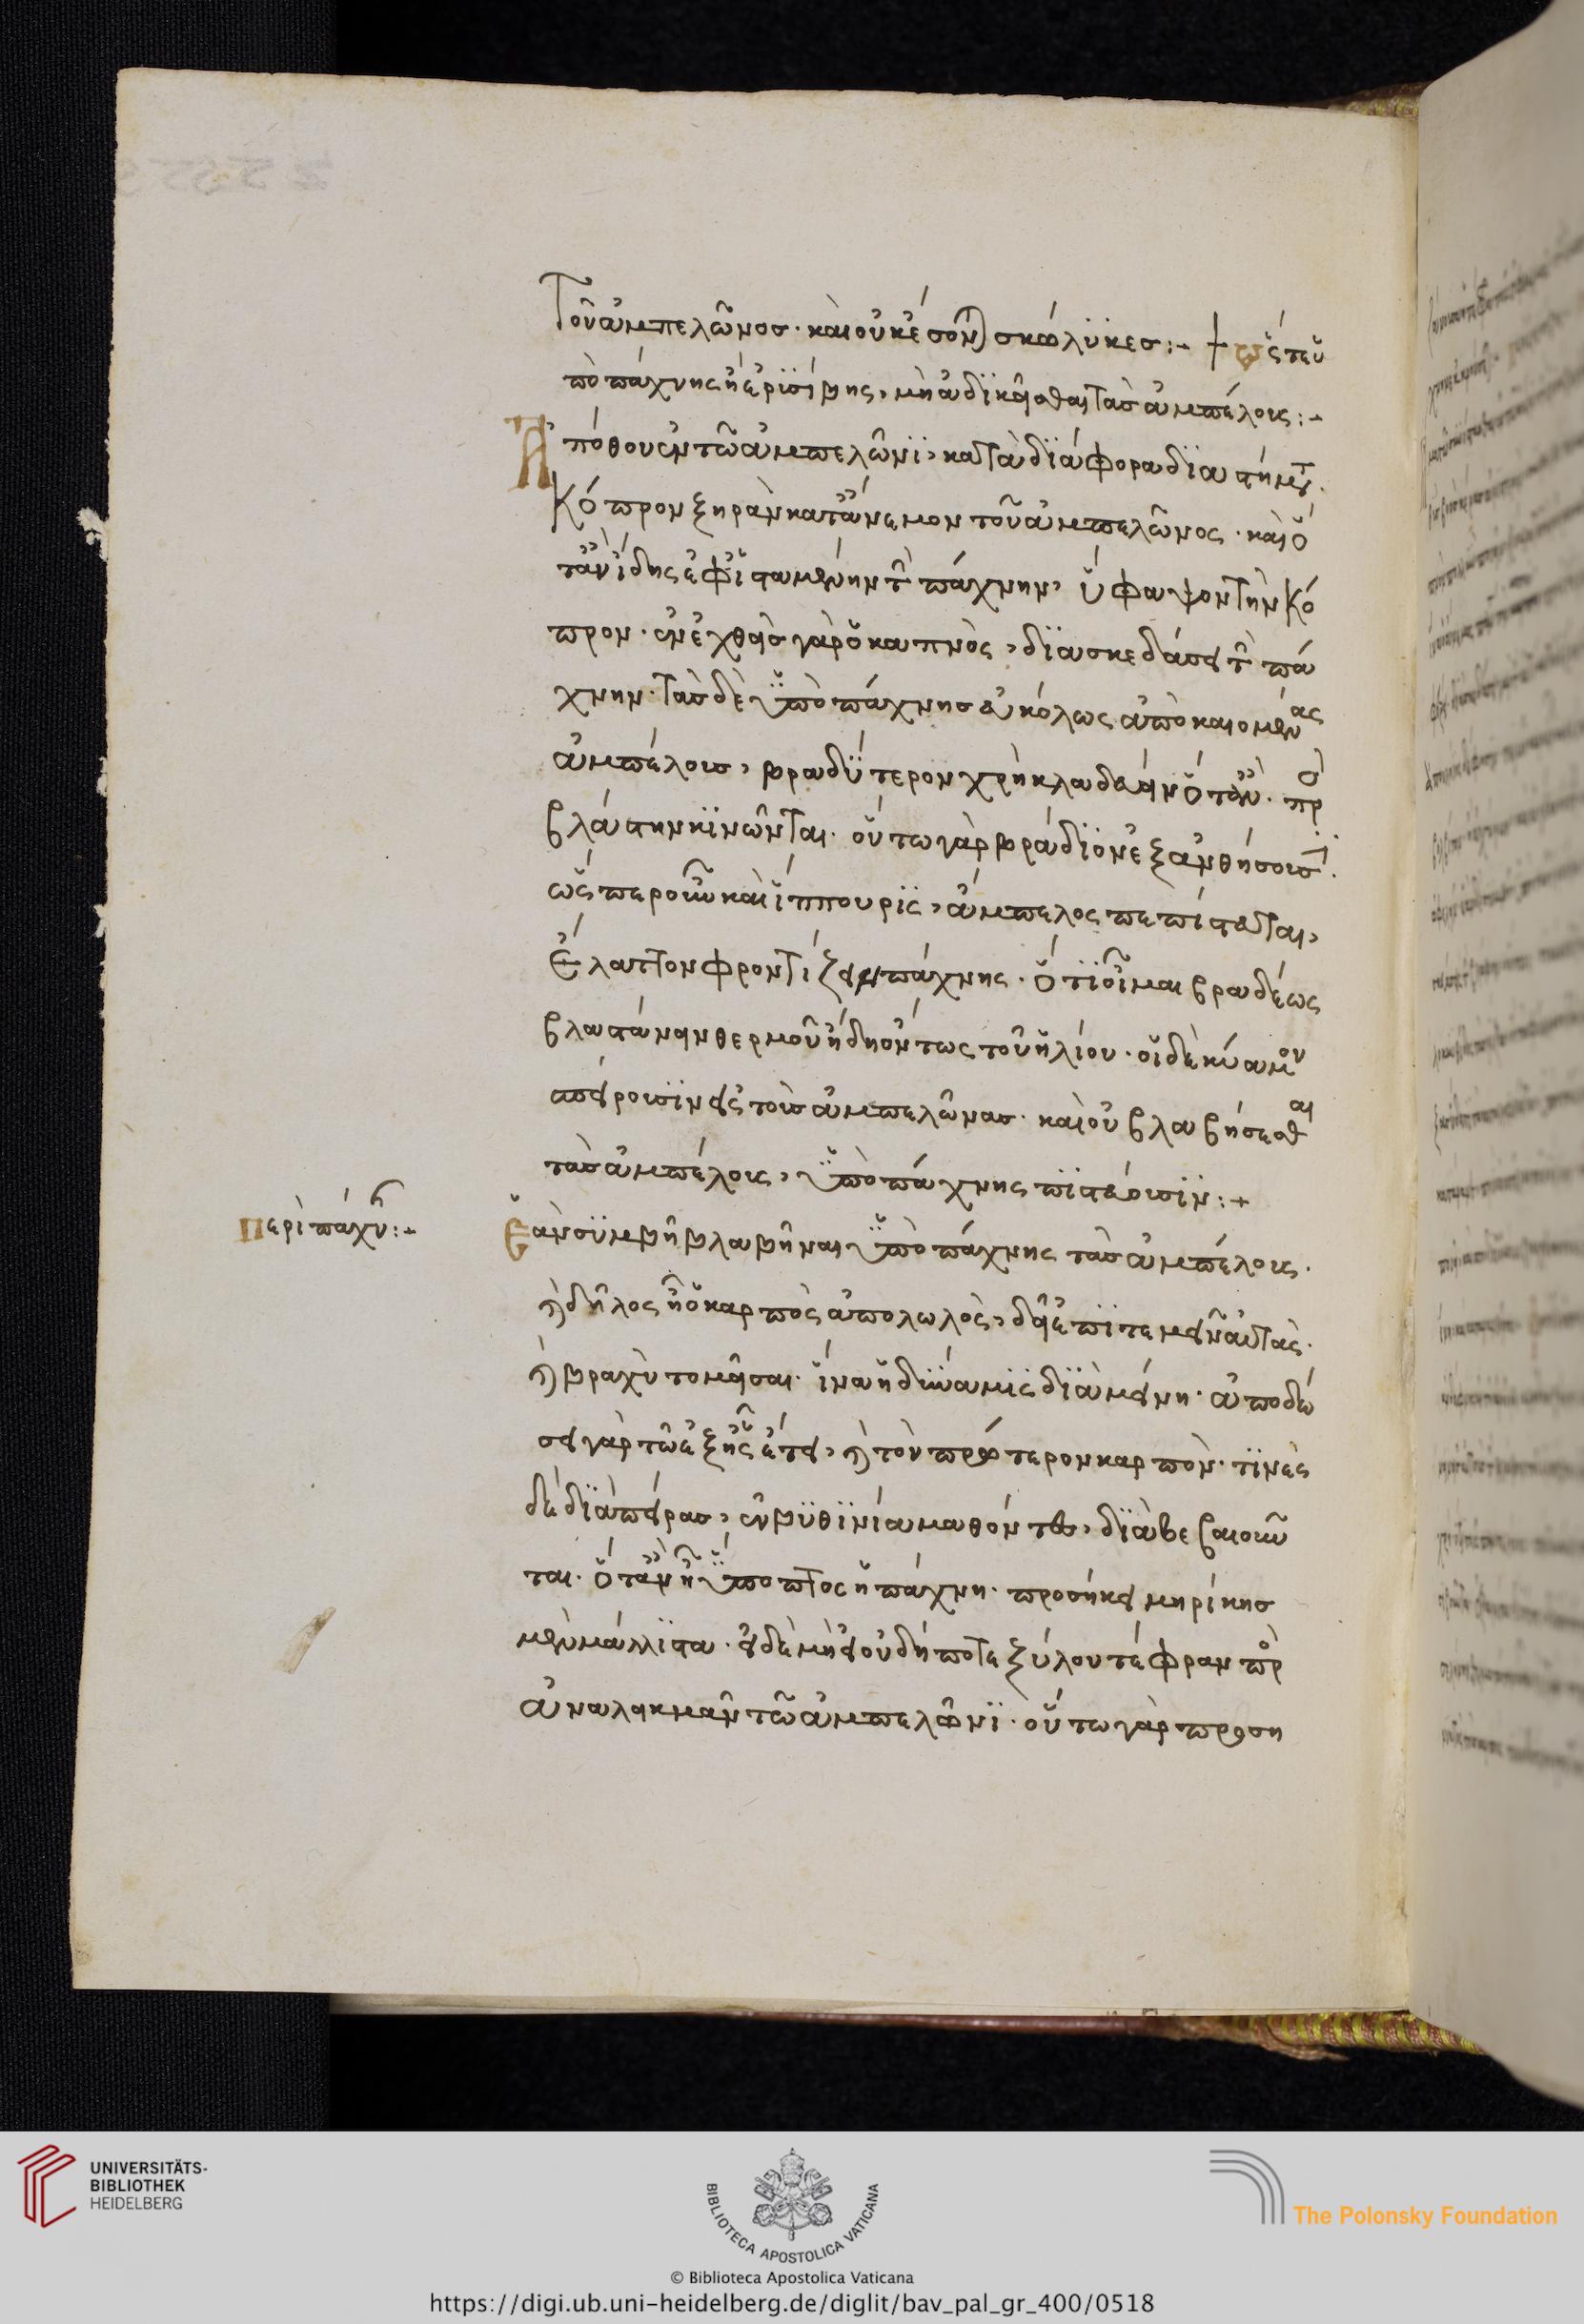 τοῦ ἀμπελῶνος· καὶ οὐκ ἔσονται σκώληκες :- + ὥστε ὑ
πὸ πάχνης ἢ ἐρισίβης, μὴ ἀδικεῖσθαι τὰς ἀμπέλους :-
Ἀπόθου ἐν τῷ ἀμπελῶνι, κατὰ διάφορα διαστήματα
κόπρον ξηρὰν κατάνεμον τοῦ ἀμπελῶνος· καὶ ὅ
ταν ἴδης ἐφισταμένην τὴν πάχνην, ὕφαψον τὴν κό
προν· ἐνεχθεὶς γὰρ ὁ καπνὸς, διασκεδάσει τὴν πά
χνην· τὰς δὲ ὑπὸ πάχνης εὐκόλως ἀποκαιομένας
ἀμπέλους, βραδύτερον χρὴ κλαδεύειν ὅταν πρὸς
βλάστην κινῶνται· οὕτω γὰρ βράδιον ἐξανθήσουσι·
ὥσπερ οὖν καὶ ἵππουρις, ἄμπελος πεπίστευται,
ἔλαττον φροντίζειν πάχνης· ὅτι οἶμαι βραδέως
βλαστάνειν θερμοῦ ἤδη ὄντως τοῦ ἡλίου· οἱ δὲ κύαμον
σπείρουσιν εἰς τοὺς ἀμπελῶνας· καὶ οὐ βλαβήσεσθαι
τὰς ἀμπέλους, ὑπὸ πάχνης πιστεύουσιν :+
Περὶ πάχνης :+
Ἐὰν συμβῆ βλαβῆναι ὑπὸ πάχνης τὰς ἀμπέλους·
καὶ δῆλος ἦ ὁ καρπὸς ἀπολωλὸς, δεῖ ἐπιτεμεῖν αὐτὰς·
καὶ βραχυτομεῖσαι· ἵνα ἡ δύναμις διαμείνη· ἀποδώ
σει γὰρ τῶ ἐξῆς ἔτει, καὶ τὸν πρότερον καρπόν· τινὲς
δὲ διὰ πείρας, ἐν βυθινία μαθόντες, διαβεβαιοῦν
ται· ὅταν ἦ ὕποπτος ἡ πάχνη· προσήκει μηρίκης
μὲν μάλιστα· εἰ δὲ μὴ εἰ οὐδήποτε ξύλου τέφραν προ
αναλικμᾶν τῷ ἀμπελῶνι· οὕτω γὰρ προση
UNIVERSITÄTS-
BIBLIOTHEK
HEIDELBERG
BIBLIOTECA APOSTOLICA VATICANA
The Polonsky Foundation
© Biblioteca Apostolica Vaticana
https://digi.ub.uni-heidelberg.de/diglit/bav_pal_gr_400/0518